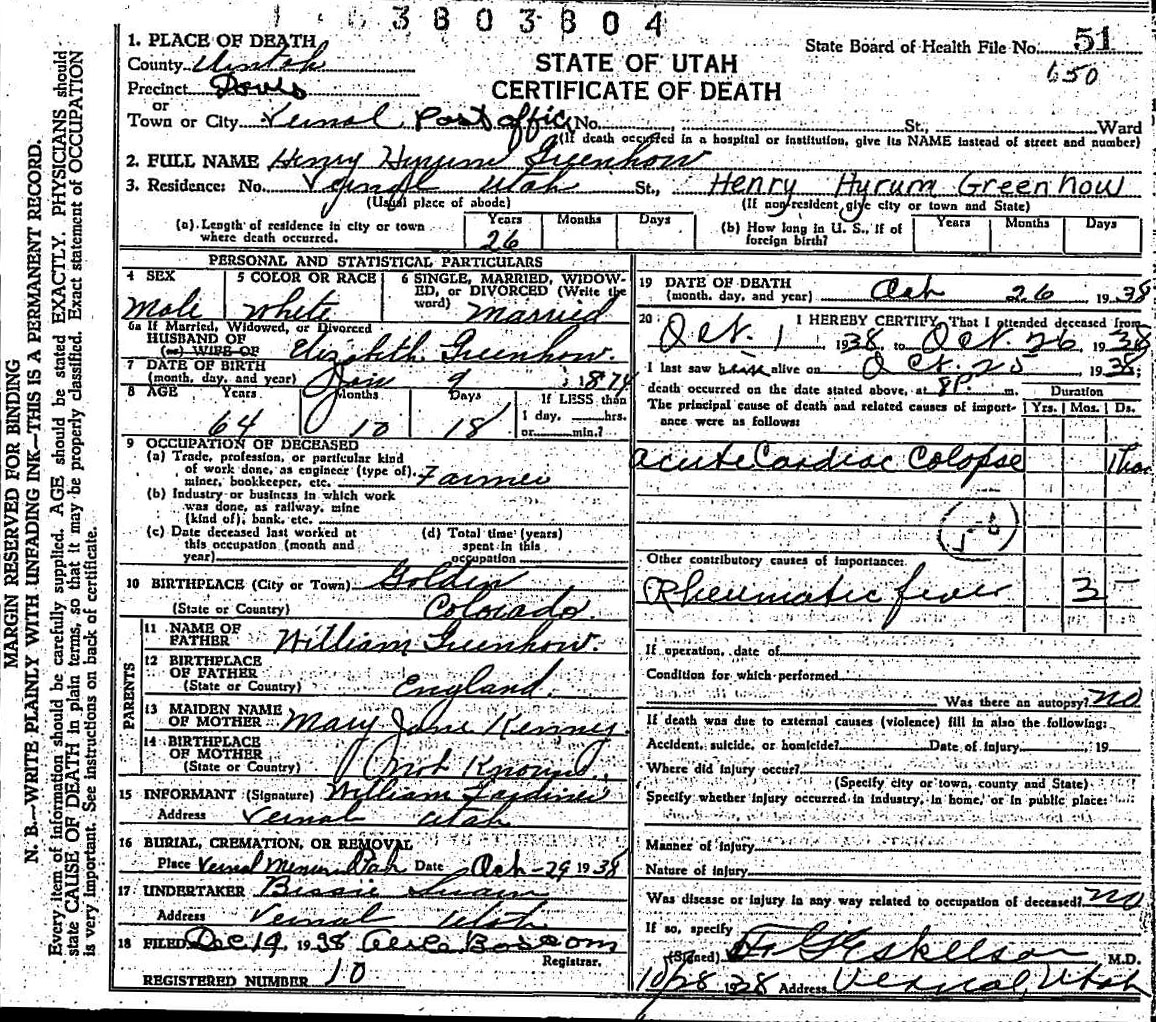 3803804
1. PLACE OF DEATH
County Uintah
Precinct
or
Town or City Vernal Post Offic No. St., Ward
(If death occurred in a hospital or institution, give its NAME instead of street and number)
STATE OF UTAH
CERTIFICATE OF DEATH
State Board of Health File No. 51
650
2. FULL NAME Henry Hyrum Greenhow
3. Residence: No. Utah St., Henry Hyrum Greenhow
(Usual place of abode) (If non-resident give city or town and State)
(a) Length of residence in city or town where death occurred. Years 26 Months Days
(b) How long in U. S., if of foreign birth? Years Months Days
PERSONAL AND STATISTICAL PARTICULARS
4 SEX Male
5 COLOR OR RACE White
6 SINGLE, MARRIED, WIDOWED, or DIVORCED (Write the word) Married
6a If Married, Widowed, or Divorced
HUSBAND OF
(or) WIFE OF Elizabeth Greenhow.
7 DATE OF BIRTH
(month, day, and year) Jan 9 1874
8 AGE Years 64 Months 10 Days 18 If LESS than
1 day, hrs.
or min.?
9 OCCUPATION OF DECEASED
(a) Trade, profession, or particular kind
of work done, as engineer (type of),
miner, bookkeeper, etc. Farmer
(b) Industry or business in which work
was done, as railway, mine
(kind of), bank, etc.
(c) Date deceased last worked at
this occupation (month and
year)
(d) Total time (years)
spent in this
occupation
10 BIRTHPLACE (City or Town) Golden
(State or Country) Colorado.
PARENTS
11 NAME OF
FATHER William Greenhow.
12 BIRTHPLACE
OF FATHER
(State or Country) England.
13 MAIDEN NAME
OF MOTHER Mary Jane Kenney.
14 BIRTHPLACE
OF MOTHER
(State or Country) Not Known.
15 INFORMANT (Signature) William Gardiner
Address Vernal Utah
16 BURIAL, CREMATION, OR REMOVAL
Place Vernal Utah Date Oct-29 1938
17 UNDERTAKER Swain
Address Vernal Utah
18 FILED Dec 14 1938
Registrar.
REGISTERED NUMBER 10
19 DATE OF DEATH
(month, day, and year) Oct 26 1938
20 I HEREBY CERTIFY, That I attended deceased from
Oct. 1 1938, to Oct. 26, 1938
I last saw alive on Oct. 25 1938;
death occurred on the date stated above, at 8P. m.
The principal cause of death and related causes of importance were as follows:
Duration
Yrs. Mos. Ds.
Acute Cardiac Colopse
Other contributory causes of importance:
Rheumatic fever 3
If operation, date of
Condition for which performed
Was there an autopsy? no
If death was due to external causes (violence) fill in also the following:
Accident, suicide, or homicide? Date of injury 19
Where did injury occur?
(Specify city or town, county and State)
Specify whether injury occurred in industry, in home, or in public place:
Manner of injury
Nature of injury
Was disease or injury in any way related to occupation of deceased? no
If so, specify
(Signed) Eskelson M.D.
10/28 1938 Address Vernal, Utah
MARGIN RESERVED FOR BINDING
N. B.—WRITE PLAINLY WITH UNFADING INK—THIS IS A PERMANENT RECORD.
Every item of information should be carefully supplied. AGE should be stated EXACTLY. PHYSICIANS should
state CAUSE OF DEATH in plain terms, so that it may be properly classified. Exact statement of OCCUPATION
is very important. See instructions on back of certificate.